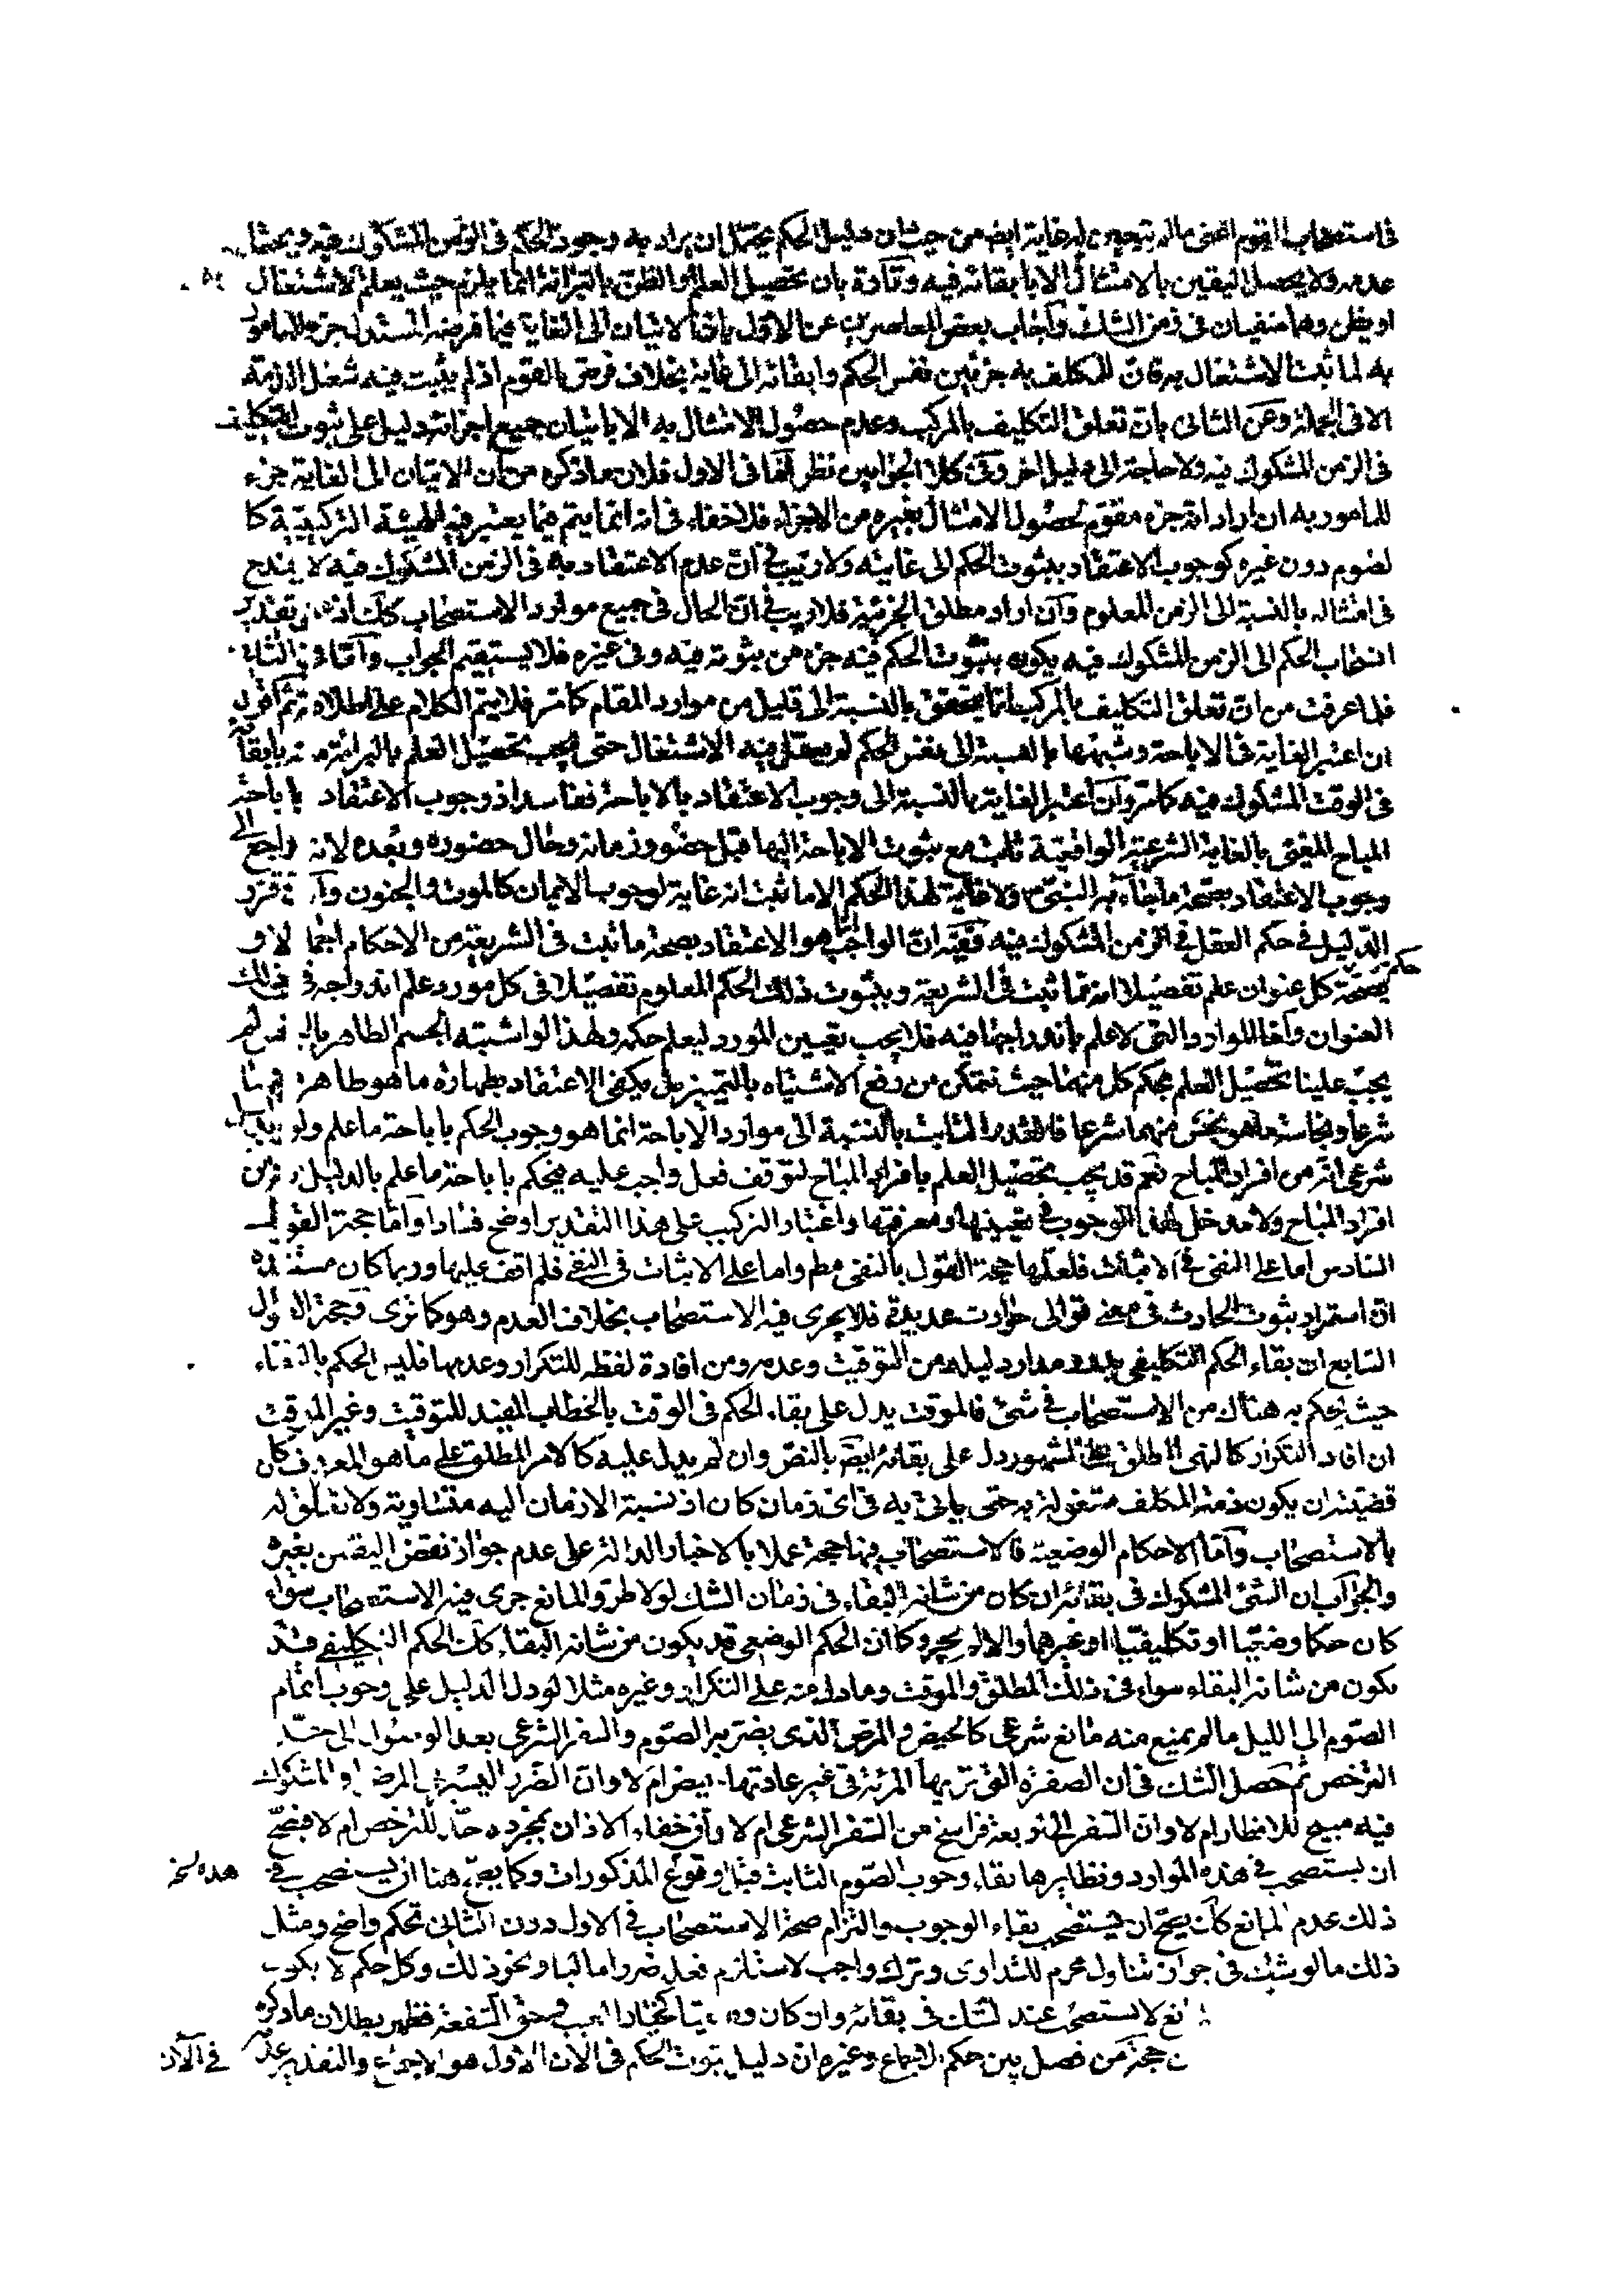 في استصحاب القوم اعنى مالم يتبين له غاية ايض من حيث ان دليل الحكم يحتمل ان يراد به وجود الحكم في الزمن المشكوك فيه ويحتمل
عدمه ولا يحصل اليقين بالامتثال الا بابقائه فيه وتارة بان تحصيل العلم او الظن بالبرائة انما يلزم حيث يعلم الاشتغال
او يظن وهما منفيان فى زمن الشك وآجاب بعض المعاصرين عن الاول بان الاتيان الى الغاية فيما فرضه المستدل جزء للمامور
به لما ثبت الاشتغال به فان المكلف به جزئين نفس الحكم وابقائه الى غاية بخلاف فرض القوم اذ لم يثبت فيه شغل الذمة
الا فى الجملة وعن الثانى بان تعلق التكليف بالمركب وعدم حصول الامتثال به الا باتيان جميع اجزائه دليل على ثبوت التكليف
فى الزمن المشكوك فيه ولا حاجة الى دليل اخر وفى كلا الجوابين نظر اما فى الاول فلان ما ذكره من ان الاتيان الى الغاية جزء
للمامور به ان اراد انه جزء مقوم لحصول الامتثال بغيره من الاجزاء فلا خفاء فى انه انما يتم فيما يعتبر فيه الهيئة التركيبية كا
لصوم دون غيره كوجوب الاعتقاد بثبوت الحكم الى غايته ولا ريب فى ان عدم الاعتقاد به فى الزمن المشكوك فيه لا يقدح
فى امتثاله بالنسبة الى الزمن المعلوم وآن اراد مطلق الجزئية فلا ريب فى ان الحال فى جميع موارد الاستصحاب كك اذ تقدير
انسحاب الحكم الى الزمن المشكوك فيه يكون ثبوت الحكم فيه جزء من ثبوته فيه وفى غيره فلا يستقيم الجواب وآما فى الثانى
فلما عرفت من ان تعلق التكليف بالمركب انما يتحقق بالنسبة الى قليل من موارد المقام كما مر فلا يتم الكلام على اطلاقه ثم اقول
ان اعتبر الغاية فى الاباحة وشبهها بالنسبة الى نفس الحكم لم يعقل فيه الاشتغال حتى يجب تحصيل العلم بالبرائة منه بابقائه
فى الوقت المشكوك فيه كما مر وآن اعتبر الغاية بالنسبة الى وجوب الاعتقاد بالاباحة ففاسد اذ وجوب الاعتقاد باباحة
المباح المغيى بالغاية الشرعية الواقعية ثابت مع ثبوت الاباحة اليها قبل حضور زمانه وحال حضوره وبعده لانه راجع الى
وجوب الاعتقاد بصحة ما جاء به النبى ص ولا غاية لهذا الحكم الا ما ثبت انه غاية لوجوب الايمان كالموت والجنون وآ قرر
الدليل فى حكم العقل فى الزمن المشكوك فيه ففيه ان الواجب انما هو الاعتقاد بصحة ما ثبت فى الشريعة من الاحكام اجمالا و
بصحة حكم كل عنوان علم تفصيلا انه مما ثبت فى الشريعة وبثبوت ذلك الحكم المعلوم تفصيلا فى كل مورد علم اندراجه فى ذلك
العنوان وآما الموارد التى لا علم باندراجها فيه فلا يجب تعيين المورد ليعلم حكمه ولهذا لو اشتبه الجسم الطاهر بالنجس لم
يجب علينا تحصيل العلم بحكم كل منهما حيث نتمكن من رفع الاشتباه بالتميز بل يكفى الاعتقاد بطهارة ما هو طاهر منهما
شرعا ونجاسة ما هو نجس منهما شرعا فالقدر الثابت بالنسبة الى موارد الاباحة انما هو وجوب الحكم باباحة ما علم ولو بدليل
شرعى انه من افراد المباح نعم قد يجب تحصيل العلم بافراد المباح لتوقف فعل واجب عليه فيحكم باباحة ما علم بالدليل انه من
افراد المباح ولا مدخل لهذا الوجوب فى تعيينها ومعرفتها واعتبار التركيب على هذا التقدير اوضح فسادا وآما حجة القول
السادس اما على النفى فى الاثبات فلعلها حجة القول بالنفى مطم واما على الاثبات فى النفى فلم اقف عليها وربما كان مستنده
ان استمرار ثبوت الحادث فى معنى توالى حوادث عديدة فلا يجرى فيه الاستصحاب بخلاف العدم وهو كما ترى وحجة القول
السابع ان بقاء الحكم التكليفى يدور مدار دليله من التوقيت وعدمه ومن افادة لفظه للتكرار وعدمها فليس الحكم بالبقاء
حيث يحكم به هناك من الاستصحاب فى شئ فالموقت يدل على بقاء الحكم فى الوقت بالخطاب المفيد للتوقيت وغير الموقت
ان افاد التكرار كالنهى المطلق على المشهور دل على بقائه ايض بالنص وان لم يدل عليه كالامر المطلق على ما هو المعروف كان
قضيته ان يكون ذمة المكلف مشغولة به حتى ياتى به فى اى زمان كان اذ نسبة الازمان اليه متساوية ولا تعلق له
بالاستصحاب وآما الاحكام الوضعية فالاستصحاب فيها حجة عملا بالاخبار الدالة على عدم جواز نقض اليقين بغيره
والجوآب ان الشئ المشكوك فى بقائه ان كان من شانه البقاء فى زمان الشك لولا طرو المانع جرى فيه الاستصحاب سواء
كان حكما وضعيا او تكليفيا او غيرهما والا لم يجر وكما ان الحكم الوضعى قد يكون من شانه البقاء كك الحكم التكليفى قد
يكون من شانه البقاء سواء فى ذلك المطلق والموقت وما دل منه على التكرار وغيره مثلا لو دل الدليل على وجوب اتمام
الصوم الى الليل ما لم يمنع منه مانع شرعى كالحيض والمرض الذى يضر به الصوم والسفر الشرعى بعد الوصول الى حد
الترخص ثم حصل الشك فى ان الصفرة التى تريها المرئة فى غير عادتها حيض ام لا وان الضرر اليسير فى المرض او المشكوك
فيه مبيح للافطار ام لا وان السفر الى نحو بعة فراسخ من السفر الشرعى ام لا وآن خفاء الاذان بمجرده حد للترخص ام لا فيصح
ان يستصحب فى هذه الموارد ونظايرها بقاء وجوب الصوم الثابت قبل وقوع المذكورات وكما يصح هنا ان يستصحب فى هذه نسخه
ذلك عدم المانع كك يصح ان يستصحب بقاء الوجوب والتزام صحة الاستصحاب فى الاول دون الثانى تحكم واضح ومثل
ذلك ما لو شك فى جواز تناول محرم للتداوى وترك واجب لاستلزام فعله ضررا ماليا ونحو ذلك وكل حكم لا يكون
نع لا يستصحب عند الشك فى بقائه وان كان فى حق الشفعة فظهر بطلان ما ذكره
حجة من فصل بين حكم الاجماع وغيره ان دليل ثبوت الحكم فى الان الاول هو الاجماع والتقدير عدمه فى الآن